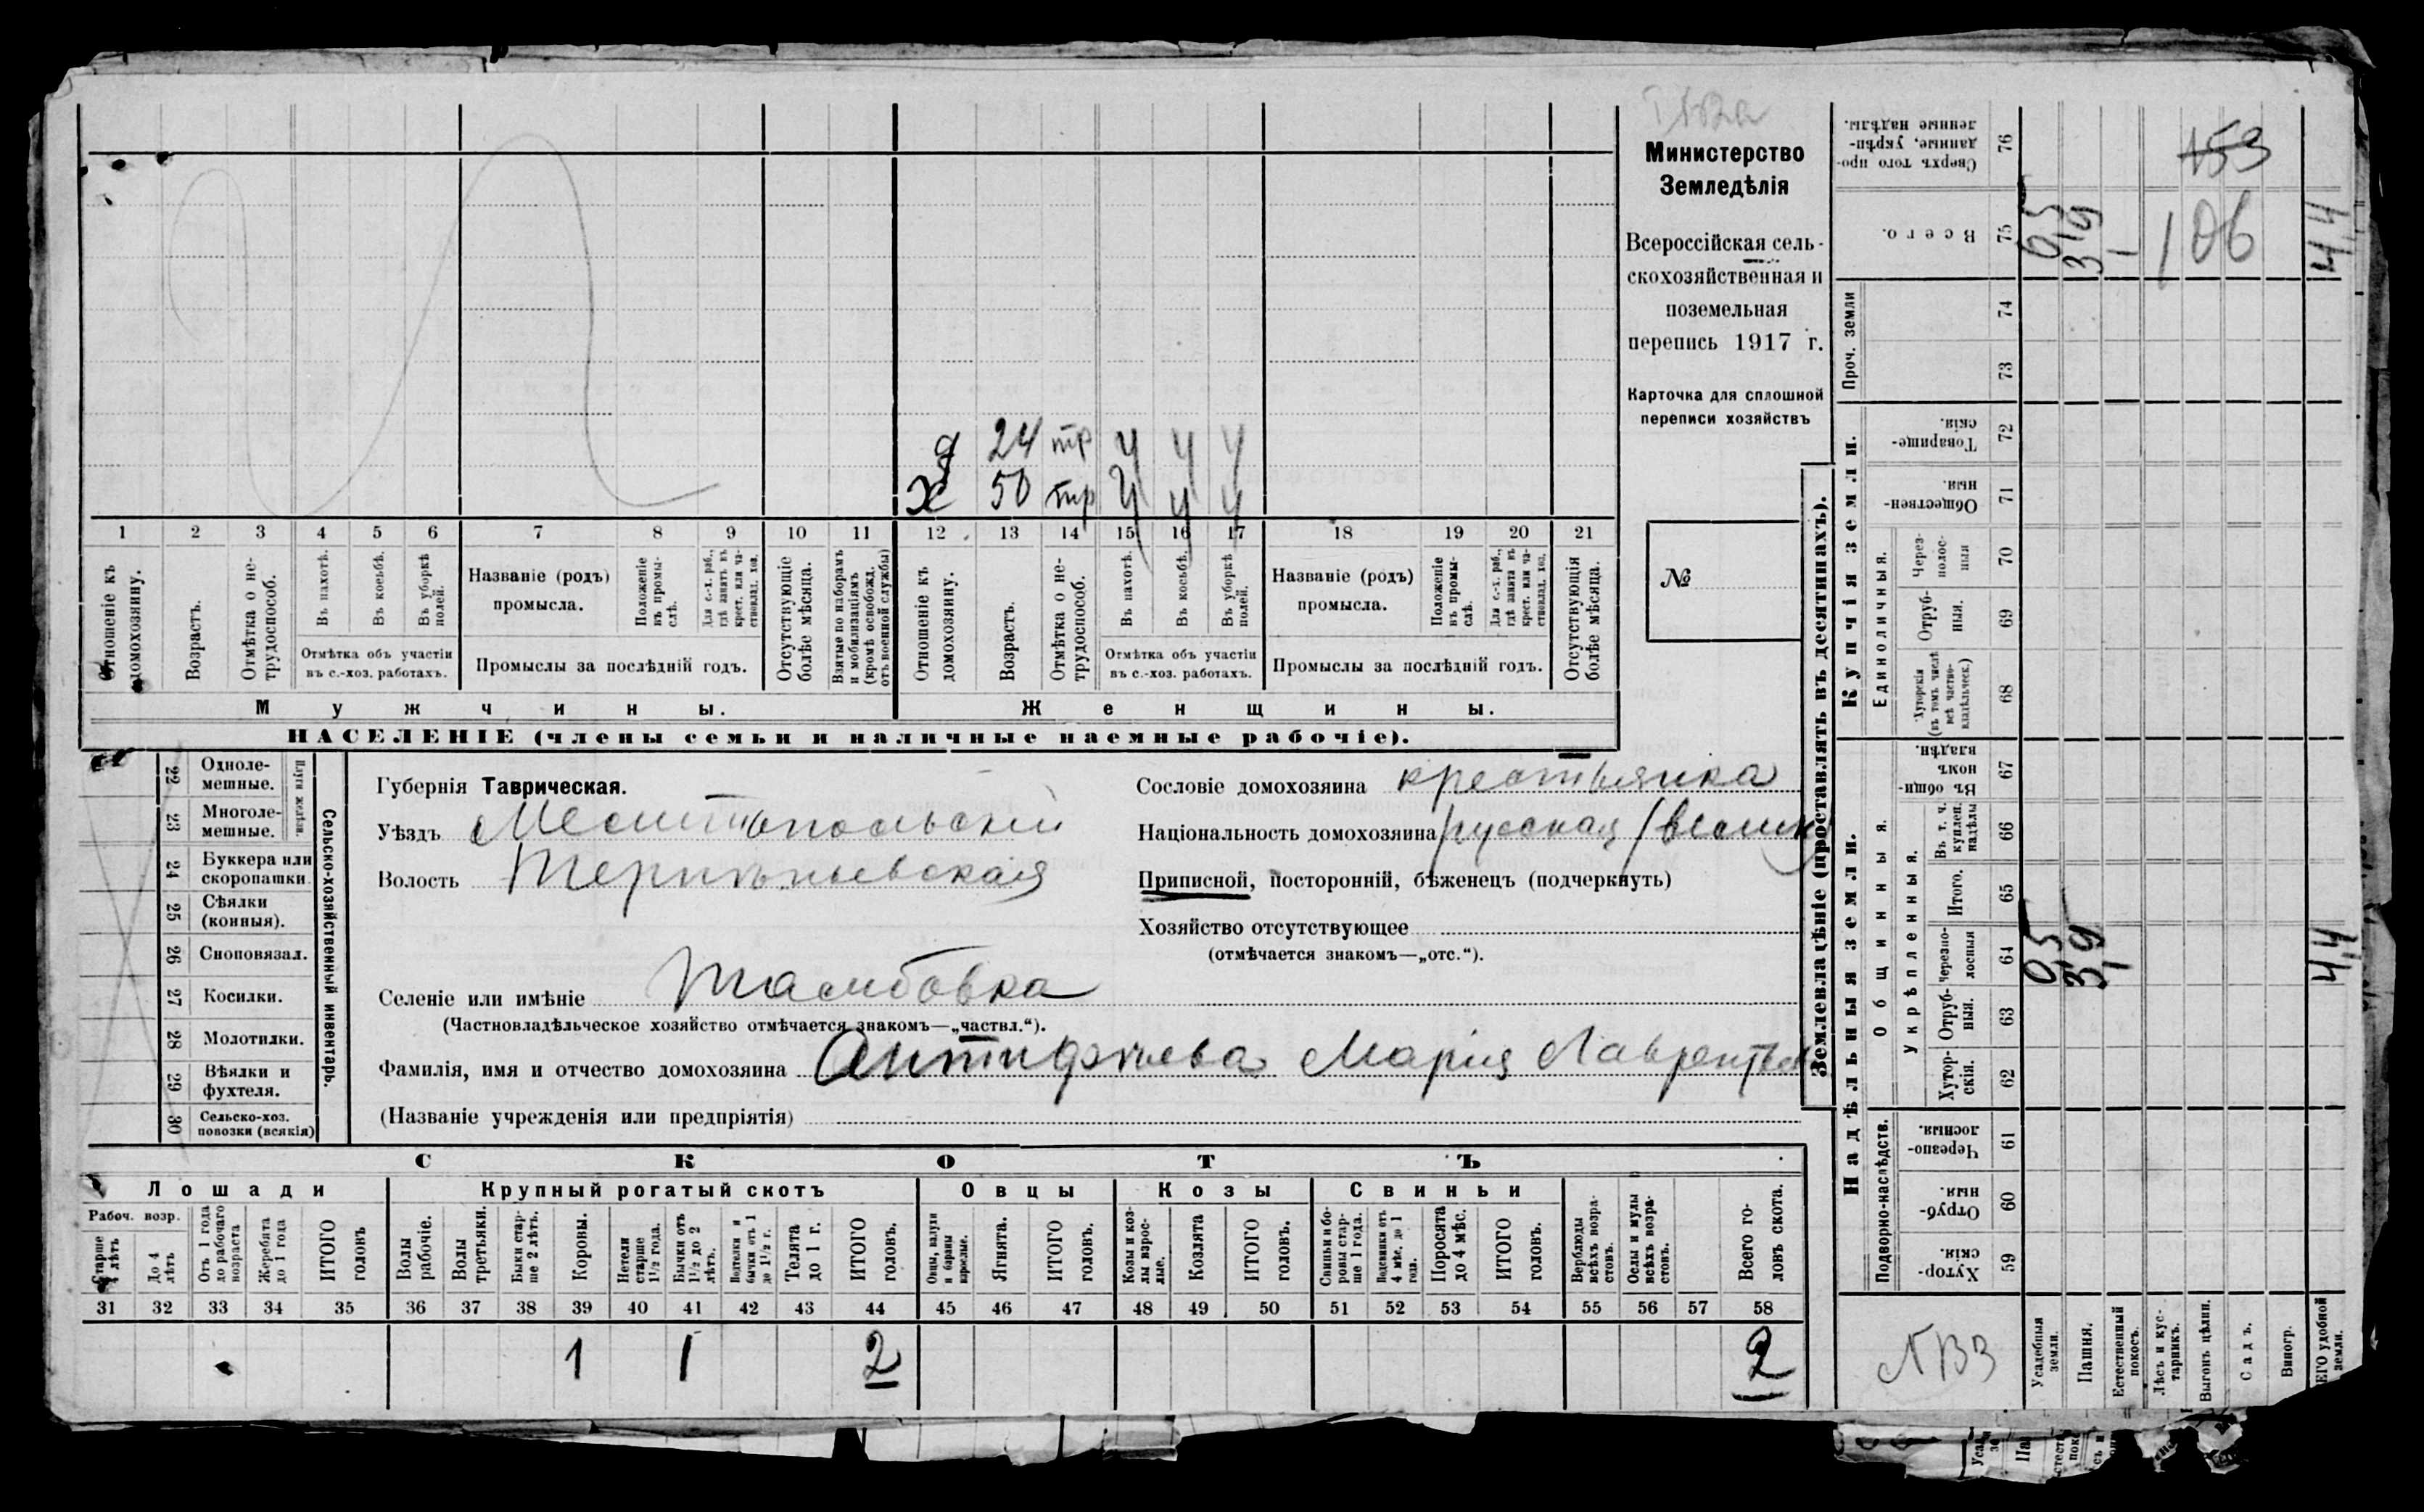 Министерство
Земледѣлія
Всероссійская сель-
скохозяйственная и
поземельная
перепись 1917 г.
Карточка для сплошной
переписи хозяйствъ
№
д 24 тр у у у
х 50 тр у у у
1 2 3 4 5 6 7 8 9 10 11 12 13 14 15 16 17 18 19 20 21
Отношеніе къ домохозяину.
Возрастъ.
Отмѣтка о не-трудоспособ.
Въ пахотѣ.
Въ косьбѣ.
Въ уборкѣ полей.
Отмѣтка объ участіи
въ с.-хоз. работахъ.
Названіе (родъ)
промысла.
Положеніе въ промы-слѣ.
Для с.-х. раб., гдѣ занятъ въ крест. или ча-стновлад. хоз.
Промыслы за послѣдній годъ.
Отсутствующіе болѣе мѣсяца.
Взятые по наборамъ и мобилизаціямъ (кромѣ освобожд. отъ военной службы)
Отношеніе къ домохозяину.
Возрастъ.
Отмѣтка о не-трудоспособ.
Въ пахотѣ.
Въ косьбѣ.
Въ уборкѣ полей.
Отмѣтка объ участіи
въ с.-хоз. работахъ.
Названіе (родъ)
промысла.
Положеніе въ промы-слѣ.
Для с.-х. раб., гдѣ занята въ крест. или ча-стновлад. хоз.
Промыслы за послѣдній годъ.
Отсутствующія болѣе мѣсяца.
Мужчины.
Женщины.
НАСЕЛЕНІЕ (члены семьи и наличные наемные рабочіе).
Сельско-хозяйственный инвентарь.
Плуги желѣзн.
22 Одноле-мешные.
23 Многоле-мешные.
24 Буккера или скоропашки
25 Сѣялки (конныя).
26 Сноповязал.
27 Косилки.
28 Молотилки.
29 Вѣялки и фухтеля.
30 Сельско-хоз. повозки (всякія)
Губернія Таврическая.
Уѣздъ Мелитопольскій
Волость Терпѣньевская
Селеніе или имѣніе Тамбовка
(Частновладѣльческое хозяйство отмѣчается знакомъ—„частвл.“).
Фамилія, имя и отчество домохозяина Антифѣева Марія Лаврентьев
(Названіе учрежденія или предпріятія)
Сословіе домохозяина крестьянка
Національность домохозяина русская (велик
Приписной, посторонній, бѣженецъ (подчеркнуть)
Хозяйство отсутствующее
(отмѣчается знакомъ—„отс.“).
СКОТЪ
Лошади
Рабоч. возр.
Старше 4 лѣтъ
До 4 лѣтъ
Отъ 1 года до рабочаго возраста
Жеребята до 1 года
ИТОГО головъ
Крупный рогатый скотъ
Волы рабочіе.
Волы третьяки.
Быки стар-ше 2 лѣтъ.
Коровы.
Нетели старше 1½ года.
Бычки отъ 1½ до 2 лѣтъ.
Подтелки и бычки отъ 1 до 1½ г.
Телята до 1 г.
ИТОГО головъ.
Овцы
Овцы, валухи и бараны взрослые.
Ягнята.
ИТОГО головъ.
Козы
Козы и коз-лы взрос-лые.
Козлята
ИТОГО головъ.
Свиньи
Свиньи и бо-ровы стар-ше 1 года.
Подсвинки отъ 4 мѣс. до 1 года.
Поросята до 4 мѣс.
ИТОГО головъ.
Верблюды всѣхъ возра-стовъ.
Ослы и мулы всѣхъ возра-стовъ.
Всего го-ловъ скота.
31 32 33 34 35 36 37 38 39 40 41 42 43 44 45 46 47 48 49 50 51 52 53 54 55 56 57 58
1 1 2 2
Землевладѣніе (проставлять въ десятинахъ).
Надѣльныя земли.
Подворно-наслѣдств.
59 Хутор-скія.
60 Отруб-ныя.
61 Черезпо-лосныя.
Общинныя.
Укрѣпленныя.
62 Хутор-скія.
63 Отруб-ныя.
64 Черезпо-лосныя
65 Итого.
66 Въ т. ч. куплен. надѣлы
67 Въ общин-номъ владѣн.
Купчія земли.
Единоличныя.
68 Хуторскія (въ томъ числѣ всѣ частно-владѣльческ.)
69 Отруб-ныя.
70 Через-полос-ныя
71 Обществен-ныя.
72 Товарище-скія.
Проч. земли
73
74
75 Всего.
76 Сверхъ того про-данные, укрѣп-ленные надѣлы.
Усадебныя земли.
Пашня.
Естественный покосъ.
Лѣсъ и кус-тарникъ.
Выгонъ цѣлин.
Садъ.
Виногр.
ЕГО удобной земли.
0,5 3,9 4,4
0,5 3,9 4,4
153
106